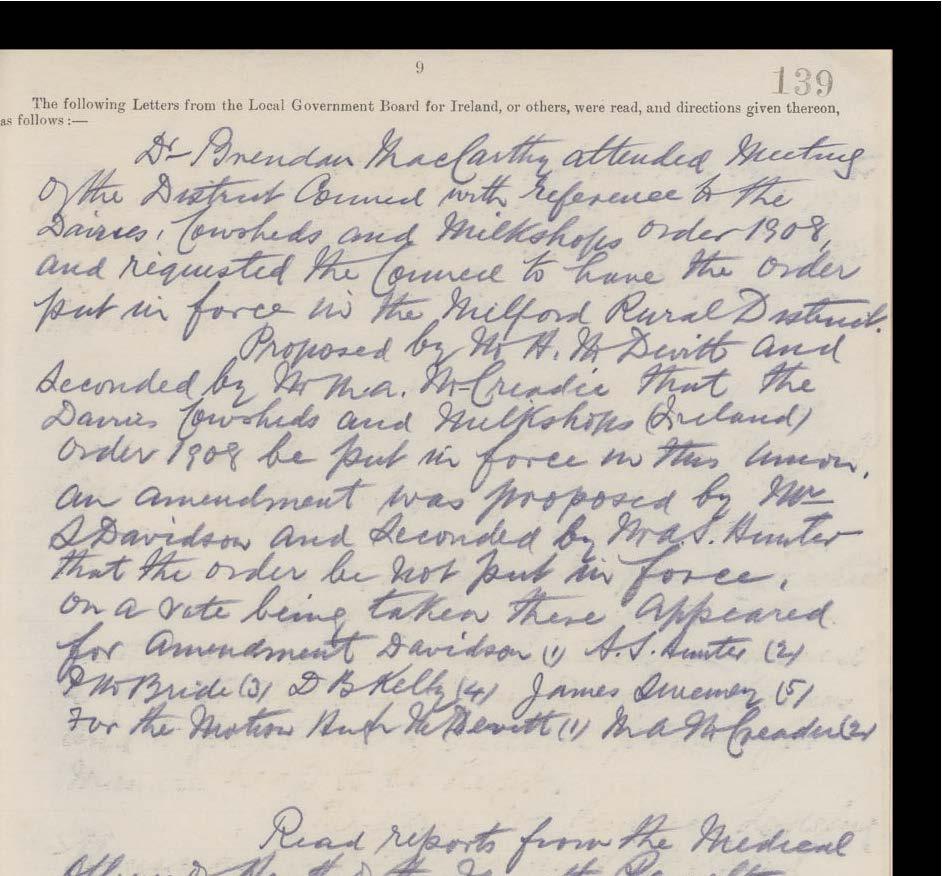 9
139
The following Letters from the Local Government Board for Ireland, or others, were read, and directions given thereon,
as follows :—
Dr Brendan MacCarthy attended Meeting
of the District Council with reference to the
Dairies, Cowsheds and Milkshops Order 1908,
and requested the Council to have the order
put in force in the Milford Rural District.
Proposed by Mr H. McDevitt and
Seconded by Mr M.A. McCreadie that the
Dairies Cowsheds and Milkshops (Ireland)
Order 1908 be put in force in this Union.
an amendment was proposed by Mr
S Davidson and Seconded by Mr A S. Hunter
that the order be not put in force.
On a vote being taken there appeared
for Amendment Davidson (1) A. S. Hunter (2)
P McBride (3) D B Kelly (4) James Sweeney (5)
For the Motion Hugh McDevitt (1) M A McCreadie (2)
Read reports from the Medical